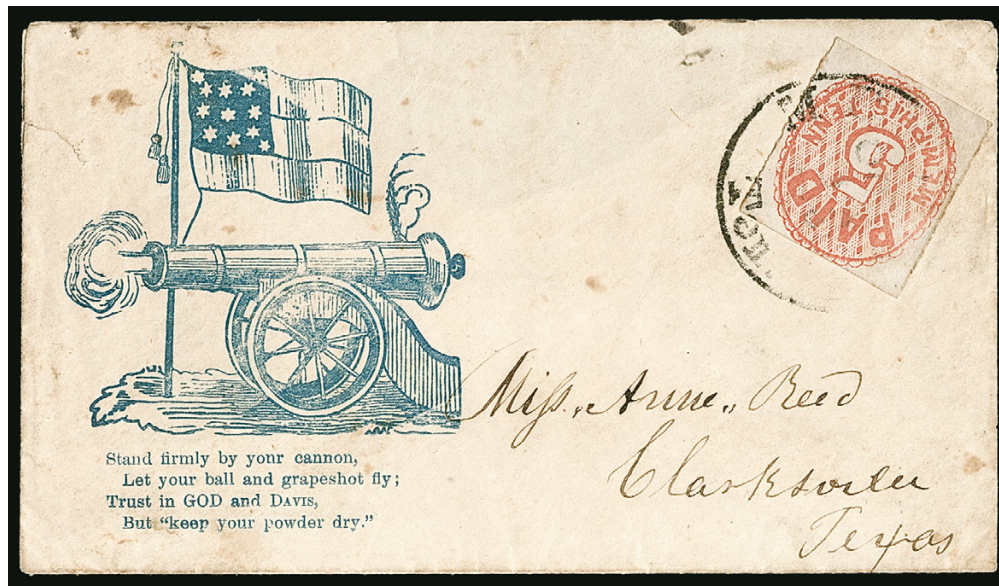 PAID
5
MEMPHIS, TENN.
Stand firmly by your cannon,
Let your ball and grapeshot fly;
Trust in GOD and DAVIS,
But "keep your powder dry."
Miss. Anne. Reed
Clarksville
Texas